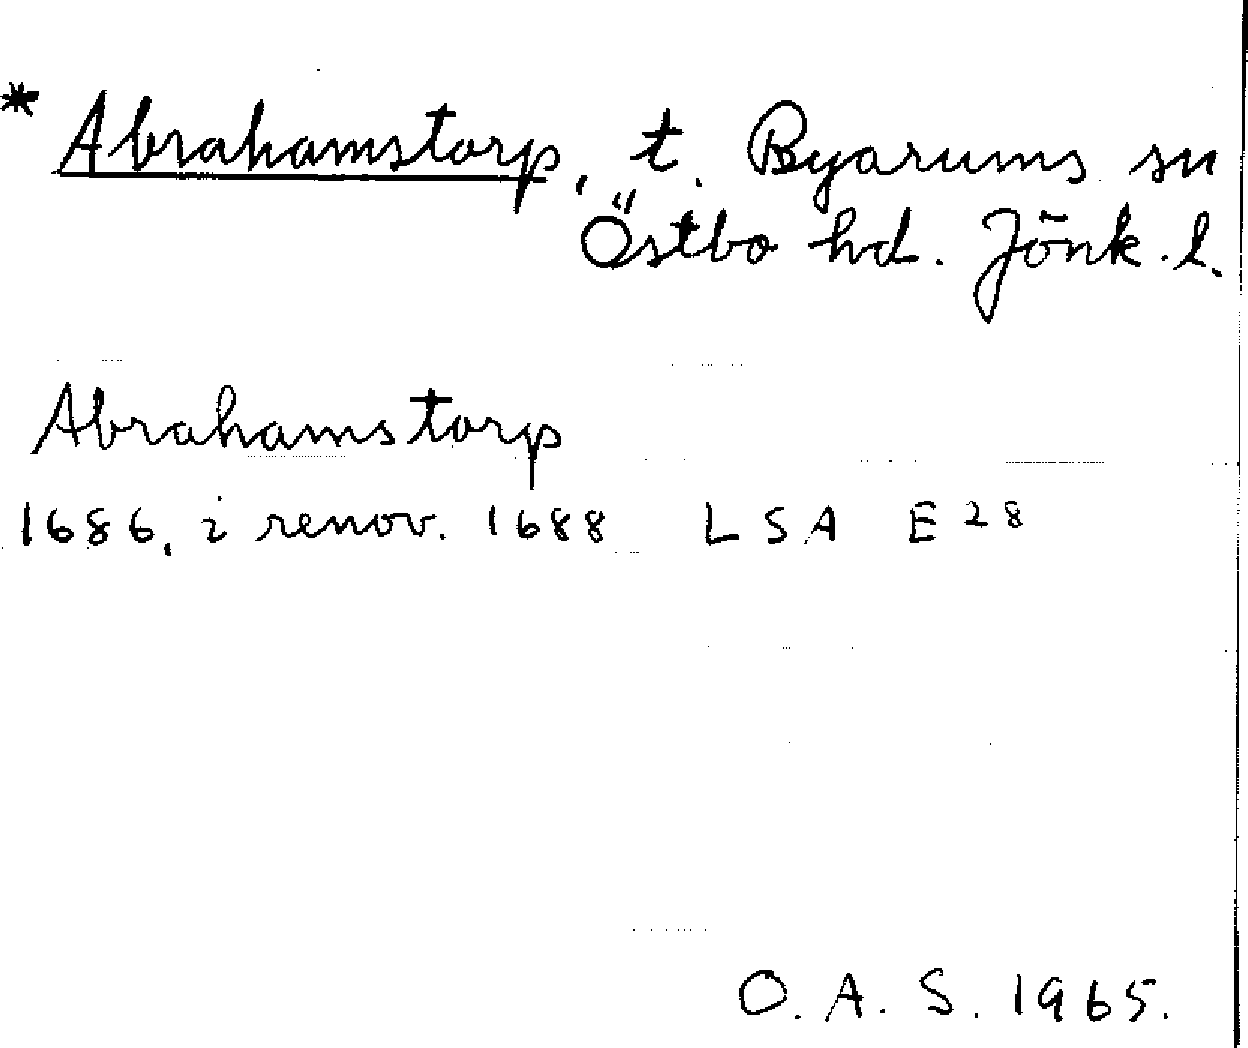 * Abrahamstorp, t. Byarums sn
Östbo hd. Jönk. l.
Abrahamstorp
1686, i renov. 1688 LSA E 28
O. A. S. 1965.